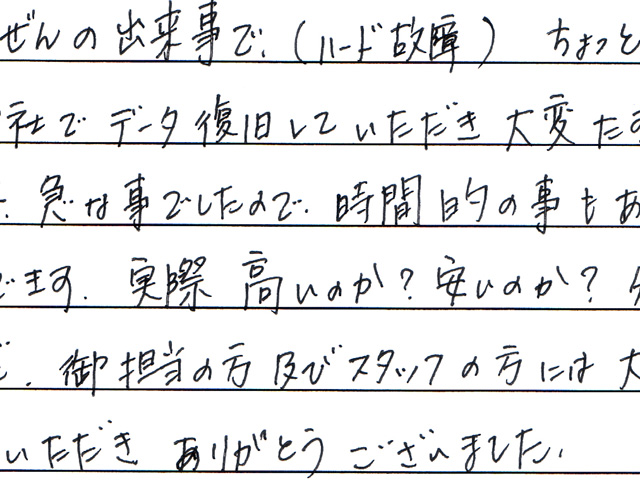 ぜんの出来事で、(ハード故障) ちょっと
社でデータ復旧していただき大変たす
急な事でしたので、時間的の事もあ
ます、実際高いのか?安いのか?
、御担当の方及びスタッフの方には大
いただきありがとうございました、